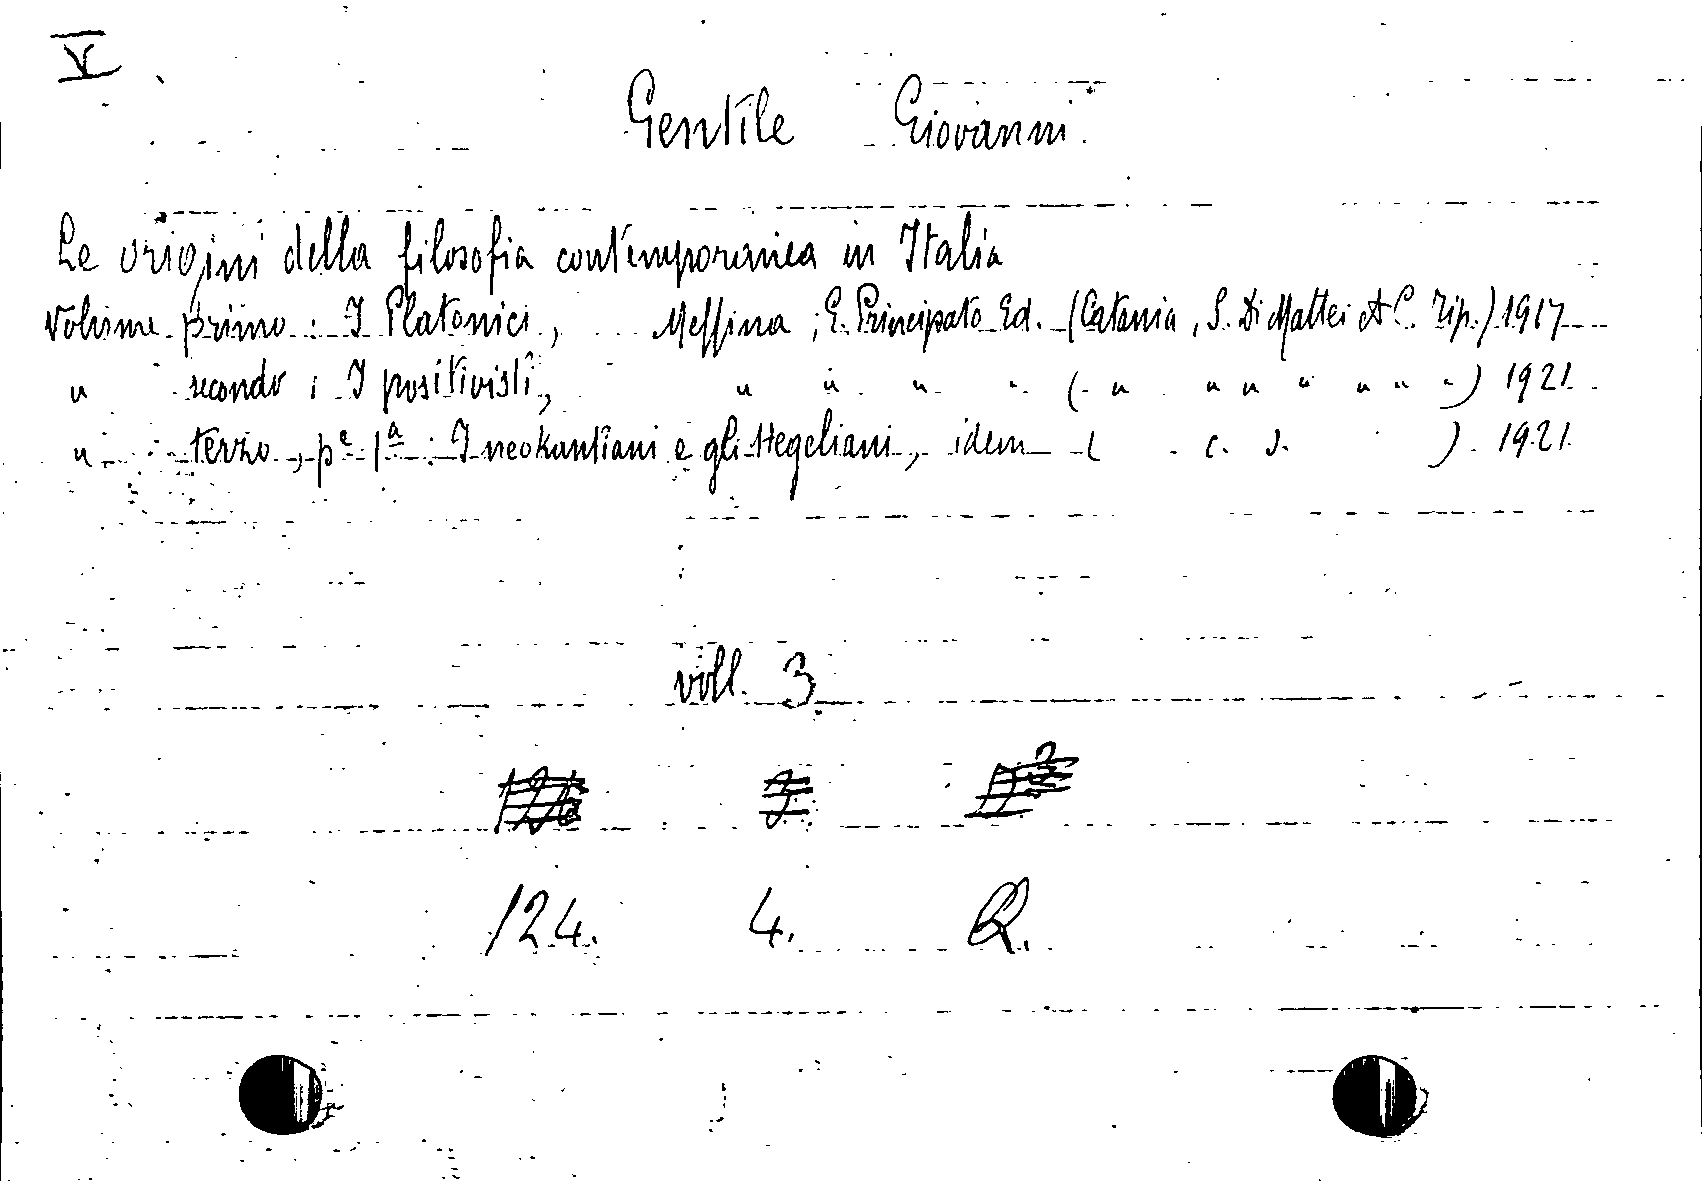 V
Gentile Giovanni
Le origini della filosofia contemporanea in Italia
Volume primo : I Platonici, Messina ; G. Principato Ed. (Catania, S. Di Mattei & C. Tip.) 1917
" secondo : I positivisti, " " " " ( " " " " " " " ) 1921
" terzo, pe 1a : I neokantiani e gli Hegeliani, idem ( c. s. ) 1921
voll. 3
124. 4. Q.